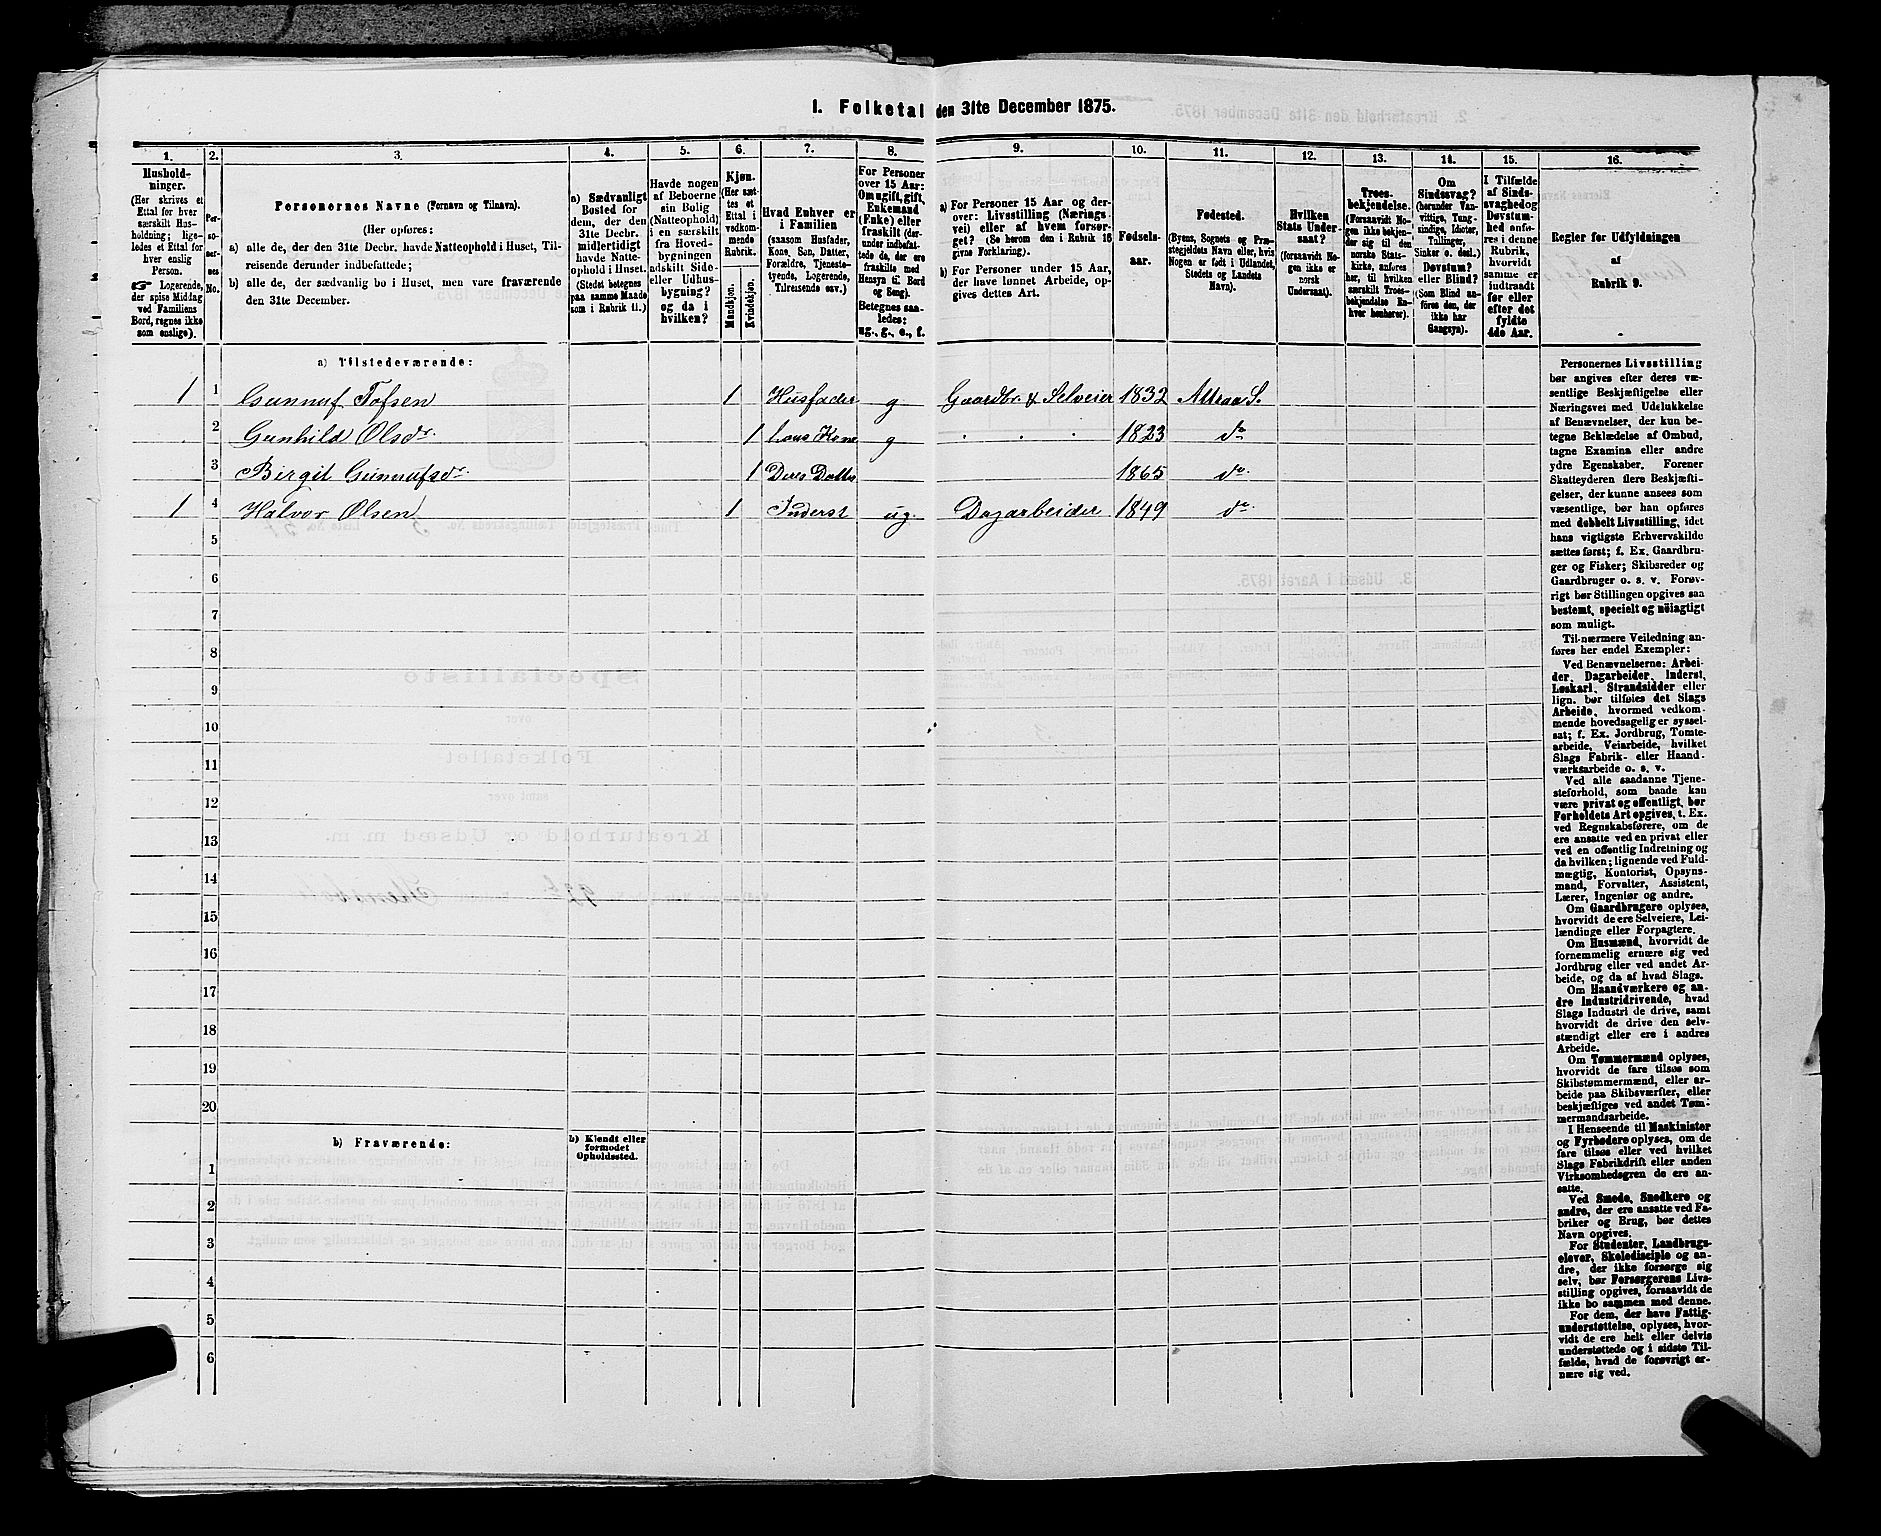 I. Folketal den 31te December 1875.
1. 2. 3. 4. 5. 6. 7. 8. 9. 10. 11. 12. 13. 14. 15. 16.
Husholdninger.
(Her skrives et
Ettal for hver
særskilt Hus-
holdning; lige-
ledes et Ettal for
hver enslig
Person.
☞ Logerende,
der spise Middag
ved Familiens
Bord, regnes ikke
som enslige).
Per-
so-
ner-
nes
No.
Personernes Navne (Fornavn og Tilnavn).
(Her opføres:
a) alle de, der den 31te Decbr. havde Natteophold i Huset, Til-
reisende derunder indbefattede;
b) alle de, der sædvanlig bo i Huset, men vare fraværende
den 31te December.
a) Sædvanligt
Bosted for
dem, der den
31te Decbr.
midlertidigt
havde Natte-
ophold i Huset.
(Stedet betegnes
paa samme Maade
som i Rubrik 11.)
Havde nogen
af Beboerne
sin Bolig
(Natteophold)
i en særskilt
fra Hoved-
bygningen
adskilt Side-
eller Udhus-
bygning?
og da i
hvilken?
Kjøn.
(Her sæt-
tes et
Ettal i
vedkom-
mende
Rubrik.
Mandkjøn.
Kvindekjøn.
Hvad Enhver er
i Familien
(saasom Husfader,
Kone, Søn, Datter,
Forældre, Tjeneste-
tyende, Logerende,
Tilreisende osv.)
For Personer
over 15 Aar:
Om ugift, gift,
Enkemand
(Enke) eller
fraskilt (der-
under indbefat-
tede de, der ere
fraskilte med
Hensyn til Bord
og Seng).
Betegnes saa-
ledes:
ug., g., e., f.
a) For Personer 15 Aar og der-
over: Livsstilling (Nærings-
vei) eller af hvem forsør-
get? (Se herom den i Rubrik 16
givne Forklaring).
b) For Personer under 15 Aar,
der have lønnet Arbeide, op-
gives dettes Art.
Fødsels-
aar.
Fødested.
(Byens, Sognets og Præ-
stegjeldets Navn eller, hvis
Nogen er født i Udlandet,
Stedets og Landets
Navn).
Hvilken
Stats Under-
saat?
(forsaavidt No-
gen ikke er
norsk
Undersaat).
Troes-
bekjendelse.
(Forsaavidt No-
gen ikke bekjen-
der sig til den
norske Stats-
kirke, anføres
her, til hvilken
særskilt Troes-
bekjendelse En-
hver henhører).
Om
Sindssvag?
(herunder Van-
vittige, Tung-
sindige, Idioter,
Tullinger,
Sinker o. desl.)
Døvstum?
eller Blind?
(Som Blind an-
føres den, der
ikke har
Gangsyn).
I Tilfælde
af Sinds-
svaghed og
Døvstum-
hed anfø-
res i denne
Rubrik,
hvorvidt
samme er
indtraadt
før eller
efter det
fyldte
4de Aar.
Regler for Udfyldningen
af
Rubrik 9.
a) Tilstedeværende:
1 1 Gunnuf Tofsen 1 Husfader g Gaardbr. & Selveier 1832 Attraa S.
2 Gunhild Olsdr. 1 hans Kone g 1823 do
3 Birgit Gunnufsdr. 1 Deres Datter 1865 do.
1 4 Halvor Olsen 1 Inderst ug. Dagarbeider 1849 do.
5
6
7
8
9
10
11
12
13
14
15
16
17
18
19
20
b) Fraværende:
b) Kjendt eller
formodet
Opholdssted.
1
2
3
4
5
6
Personernes Livsstilling
bør angives efter deres væ-
sentlige Beskjæftigelse eller
Næringsvei med Udelukkelse
af Benævnelser, der kun be-
tegne Beklædelse af Ombud,
tagne Examina eller andre
ydre Egenskaber. Forener
Skatteyderen flere Beskjæfti-
gelser, der kunne ansees som
væsentlige, bør han opføres
med dobbelt Livsstilling, idet
hans vigtigste Erhvervskilde
sættes først; f. Ex. Gaardbru-
ger og Fisker; Skibsreder og
Gaardbruger o. s. v. Forøv-
rigt bør Stillingen opgives saa
bestemt, specielt og nöiagtigt
som muligt.
Til nærmere Veiledning an-
føres her endel Exempler:
Ved Benævnelserne: Arbei-
der, Dagarbeider, Inderst,
Løskarl, Strandsidder eller
lign. bør tilføies det Slags
Arbeide, hvormed vedkom-
mende hovedsagelig er syssel-
sat; f. Ex. Jordbrug, Tomte-
arbeide, Veiarbeide, hvilket
Slags Fabrik- eller Haand-
værksarbeide o. s. v.
Ved alle saadanne Tjene-
steforhold, som baade kan
være privat og offentligt, bør
Forholdets Art opgives, t. Ex.
ved Regnskabsførere, om de
ere ansatte ved en privat eller
ved en offentlig Indretning og
da hvilken; lignende ved Fuld-
mægtig, Kontorist, Opsyns-
mand, Forvalter, Assistent,
Lærer, Ingeniør og andre.
Om Gaardbrugere oplyses,
hvorvidt de ere Selveiere, Lei-
lændinge eller Forpagtere.
Om Husmænd, hvorvidt de
fornemmelig ernære sig ved
Jordbrug eller ved andet Ar-
beide, og da af hvad Slags.
Om Haandværkere og an-
dre Industridrivende, hvad
Slags Industri de drive, samt
hvorvidt de drive den selv-
stændigt eller ere i andres
Arbeide.
Om Tømmermænd oplyses,
hvorvidt de fare tilsøs som
Skibstømmermænd, eller ar-
beide paa Skibsværfter, eller
beskjæftiges ved andet Tøm-
mermandsarbeide.
I Henseende til Maskinister
og Fyrbødere oplyses, om de
fare tilsøs eller ved hvilket
Slags Fabrikdrift eller anden
Virksomhedsgren de ere an-
satte.
Ved Smede, Snedkere og
andre, der ere ansatte ved Fa-
briker og Brug, bør dettes
Navn opgives.
For Studenter, Landbrugs-
elever, Skoledisciple og an-
dre, der ikke forsørge sig
selv, bør Forsørgerens Livs-
stilling opgives, forsaavidt de
ikke bo sammen med denne.
For dem, der have Fattig-
understøttelse, oplyses, hvor-
vidt de ere helt eller delvis
understøttede og i sidste Til-
fælde, hvad de forøvrigt er-
nære sig ved.